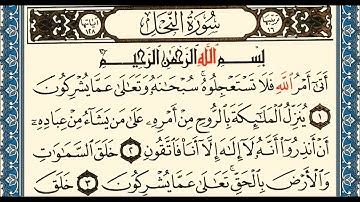 ترتيبها ١٦ سُورَةُ النَّحْلِ آياتها ١٢٨
بِسْمِ اللَّهِ الرَّحْمَٰنِ الرَّحِيمِ
أَتَىٰٓ أَمْرُ ٱللَّهِ فَلَا تَسْتَعْجِلُوهُ ۚ سُبْحَٰنَهُۥ وَتَعَٰلَىٰ عَمَّا يُشْرِكُونَ
١ يُنَزِّلُ ٱلْمَلَٰٓئِكَةَ بِٱلرُّوحِ مِنْ أَمْرِهِۦ عَلَىٰ مَن يَشَآءُ مِنْ عِبَادِهِۦٓ
أَنْ أَنذِرُوٓا۟ أَنَّهُۥ لَآ إِلَٰهَ إِلَّآ أَنَا۠ فَٱتَّقُونِ ٢ خَلَقَ ٱلسَّمَٰوَٰتِ
وَٱلْأَرْضَ بِٱلْحَقِّ ۚ تَعَٰلَىٰ عَمَّا يُشْرِكُونَ ٣ خَلَقَ